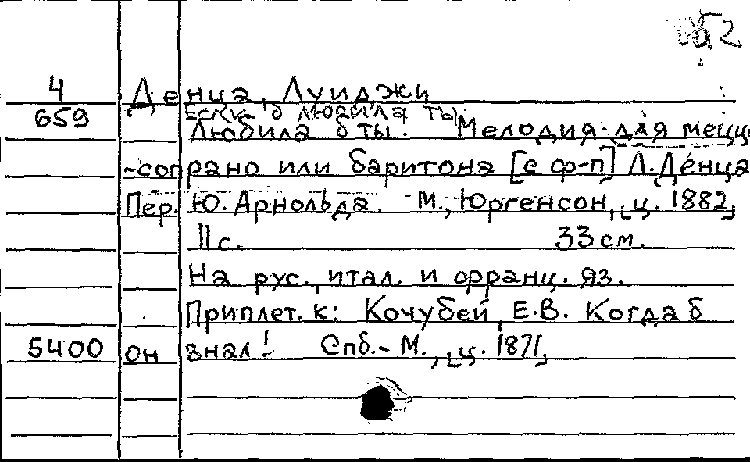 52
4 Денца, Луиджи
Если б любила ты
659 Любила б ты. Мелодия для меццо
-сопрано или баритона [с ф-п] Л. Денца
Пер. Ю. Арнольда. М., Юргенсон, ц. 1882,
11 с. 33 см.
На рус., итал. и франц. яз.
Приплет. к: Кочубей, Е.В. Когда б
5400 он знал! Спб.- М., ц. 1871,